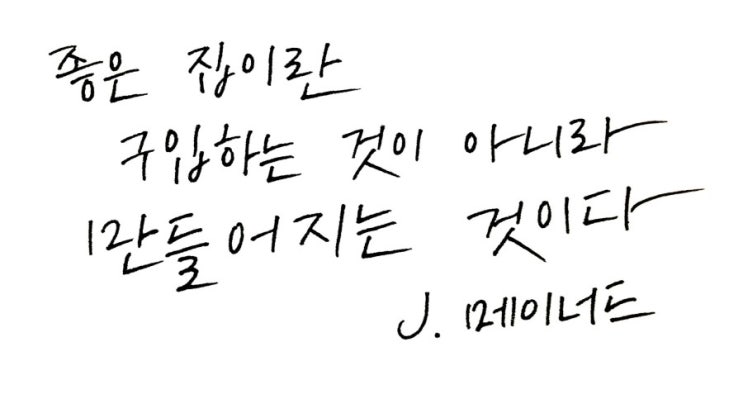 좋은 집이란
구입하는 것이 아니라
만들어지는 것이다
J. 메이너드